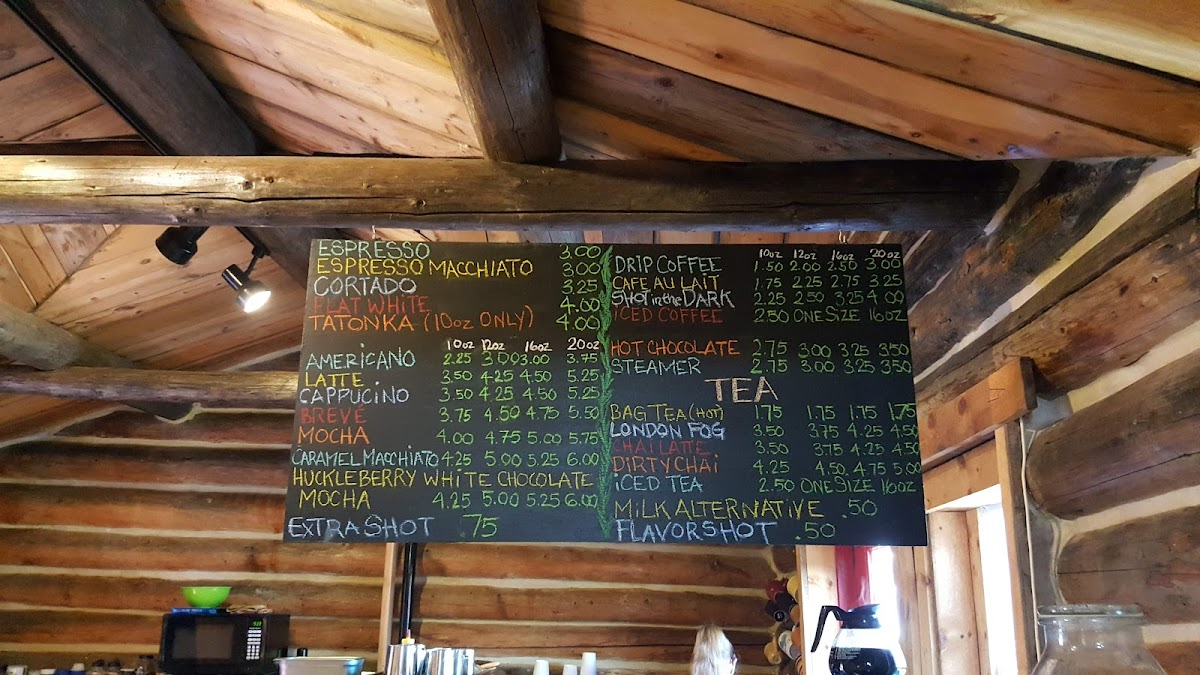 ESPRESSO 3.00
ESPRESSO MACCHIATO 3.00
CORTADO 3.25
FLAT WHITE 4.00
TATONKA (10oz ONLY) 4.00
10oz 12oz 16oz 20oz
AMERICANO 2.25 3.00 3.00 3.75
LATTE 3.50 4.25 4.50 5.25
CAPPUCINO 3.50 4.25 4.50 5.25
BREVÉ 3.75 4.50 4.75 5.50
MOCHA 4.00 4.75 5.00 5.75
CARAMEL MACCHIATO 4.25 5.00 5.25 6.00
HUCKLEBERRY WHITE CHOCOLATE
MOCHA 4.25 5.00 5.25 6.00
EXTRA SHOT .75
10oz 12oz 16oz 20oz
DRIP COFFEE 1.50 2.00 2.50 3.00
CAFE AU LAIT 1.75 2.25 2.75 3.25
SHOT in the DARK 2.25 2.50 3.25 4.00
ICED COFFEE 2.50 ONE SIZE 16oz
HOT CHOCOLATE 2.75 3.00 3.25 3.50
STEAMER 2.75 3.00 3.25 3.50
TEA
BAG TEA (HOT) 1.75 1.75 1.75 1.75
LONDON FOG 3.50 3.75 4.25 4.50
CHAI LATTE 3.50 3.75 4.25 4.50
DIRTY CHAI 4.25 4.50 4.75 5.00
ICED TEA 2.50 ONE SIZE 16oz
MILK ALTERNATIVE .50
FLAVOR SHOT .50